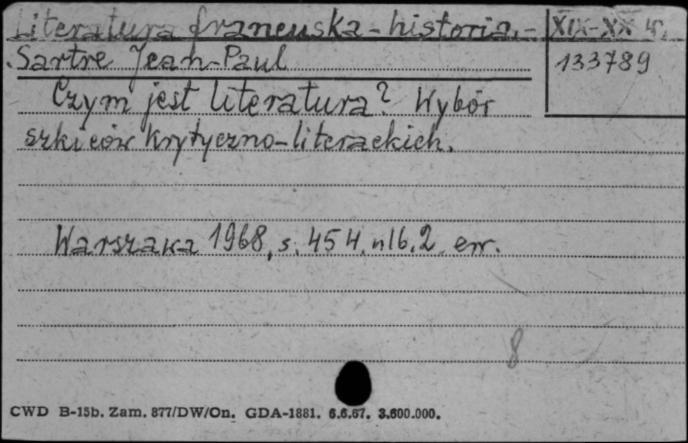 Literatura francuska - historia. - XIX-XX w.
Sartre Jean-Paul 133789
Czym jest literatura? Wybór
szkiców krytyczno-literackich.
Warszawa 1968, s. 454, nlb. 2
8
CWD B-15b. Zam. 877/DW/On. GDA-1881. 6.6.67. 3.600.000.